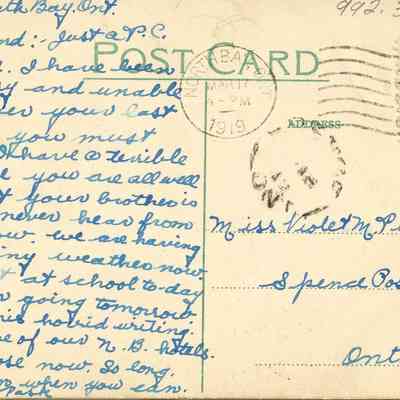 th Bay, Ont.
nd:- Just a P.C.
I have been
y and unable
er your last
you must
have a terrible
e you are all well
t your brother is
never hear from
ow. We are having
ing weather now.
t at school to-day
going tomorrow
his horrid writing.
e of our N. B. hotels.
ose now. So long.
n when you can.
Park
992.3
POST CARD
NORTH BAY
MAR 17
PM
1919
ADDRESS
Miss Violet M. P
Spence Pos
Ont